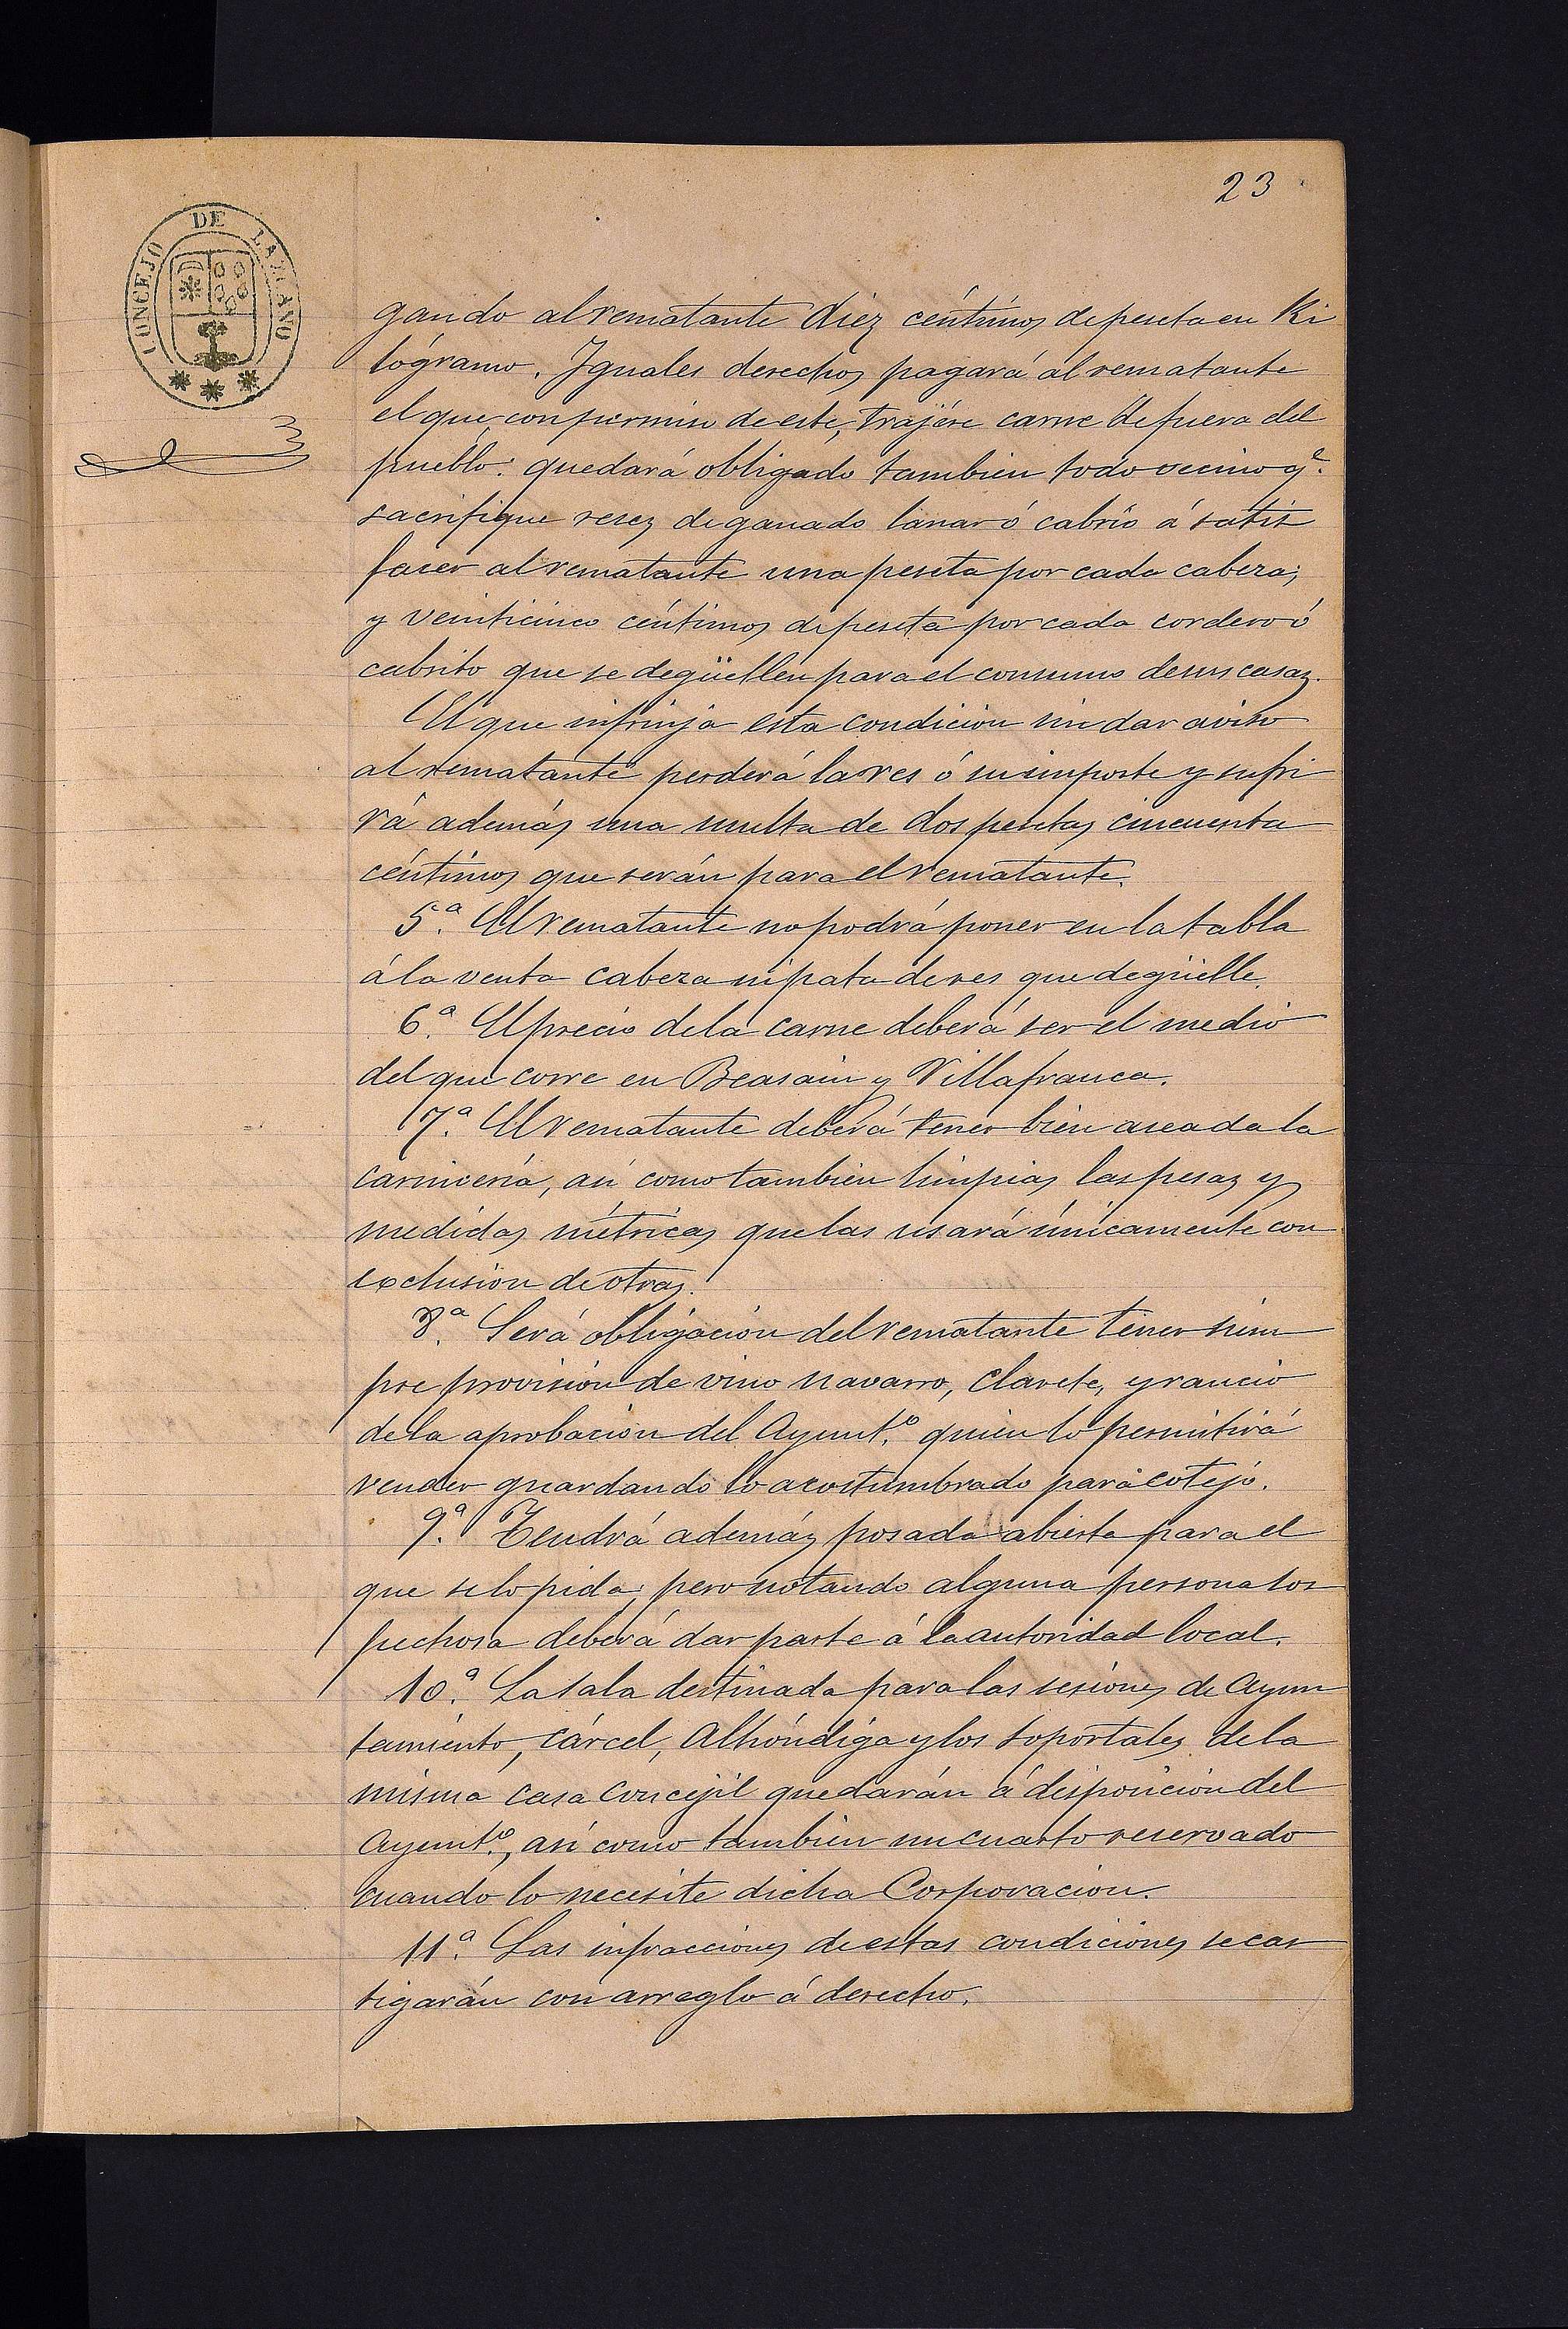 23
CONCEJO DE LAZCANO
gando al rematante diez céntimos de peseta en Ki
lógramo. Iguales derechos pagará al rematante
el que, con permiso de este, trajére carne de fuera del
pueblo: quedará obligado tambien todo vecino q.e
sacrifique reses de ganado lanar ó cabrío á satis
facer al rematante una peseta por cada cabeza;
y veinticinco céntimos de peseta por cada cordero ó
cabrito que se degüellen para el consumo de sus casas.
El que infrinja esta condicion sin dar aviso
al rematante perderá la res ó su importe y sufri
rá además una multa de dos pesetas cincuenta
céntimos que serán para el rematante.
5.ª El rematante no podrá poner en la tabla
á la venta cabeza ni pata de res que degüelle.
6.ª El precio de la carne deberá ser el medio
del que corre en Beasain y Villafranca.
7.ª El rematante deberá tener bien aseada la
carnicería, así como tambien limpias las pesas y
medidas métricas que las usará únicamente con
exclusion de otras.
8.ª Será obligación del rematante tener siem
pre provisión de vino navarro, clarete, y rancio
de la aprobacion del Ayunt.º quien lo permitirá
vender guardando lo acostumbrado para cotejo.
9.ª Tendrá además posada abierta para el
que se lo pida; pero notando alguna persona sos
pechosa deberá dar parte á la autoridad local.
10.ª La sala destinada para las sesiones de Ayun
tamiento, cárcel, Alhóndiga y los soportales de la
misma casa Concejil quedarán á disposicion del
Ayunt.º, así como tambien un cuarto reservado
cuando lo necesite dicha Corporacion.
11.ª Las infracciones de estas condiciones se cas
tigarán con arreglo á derecho.